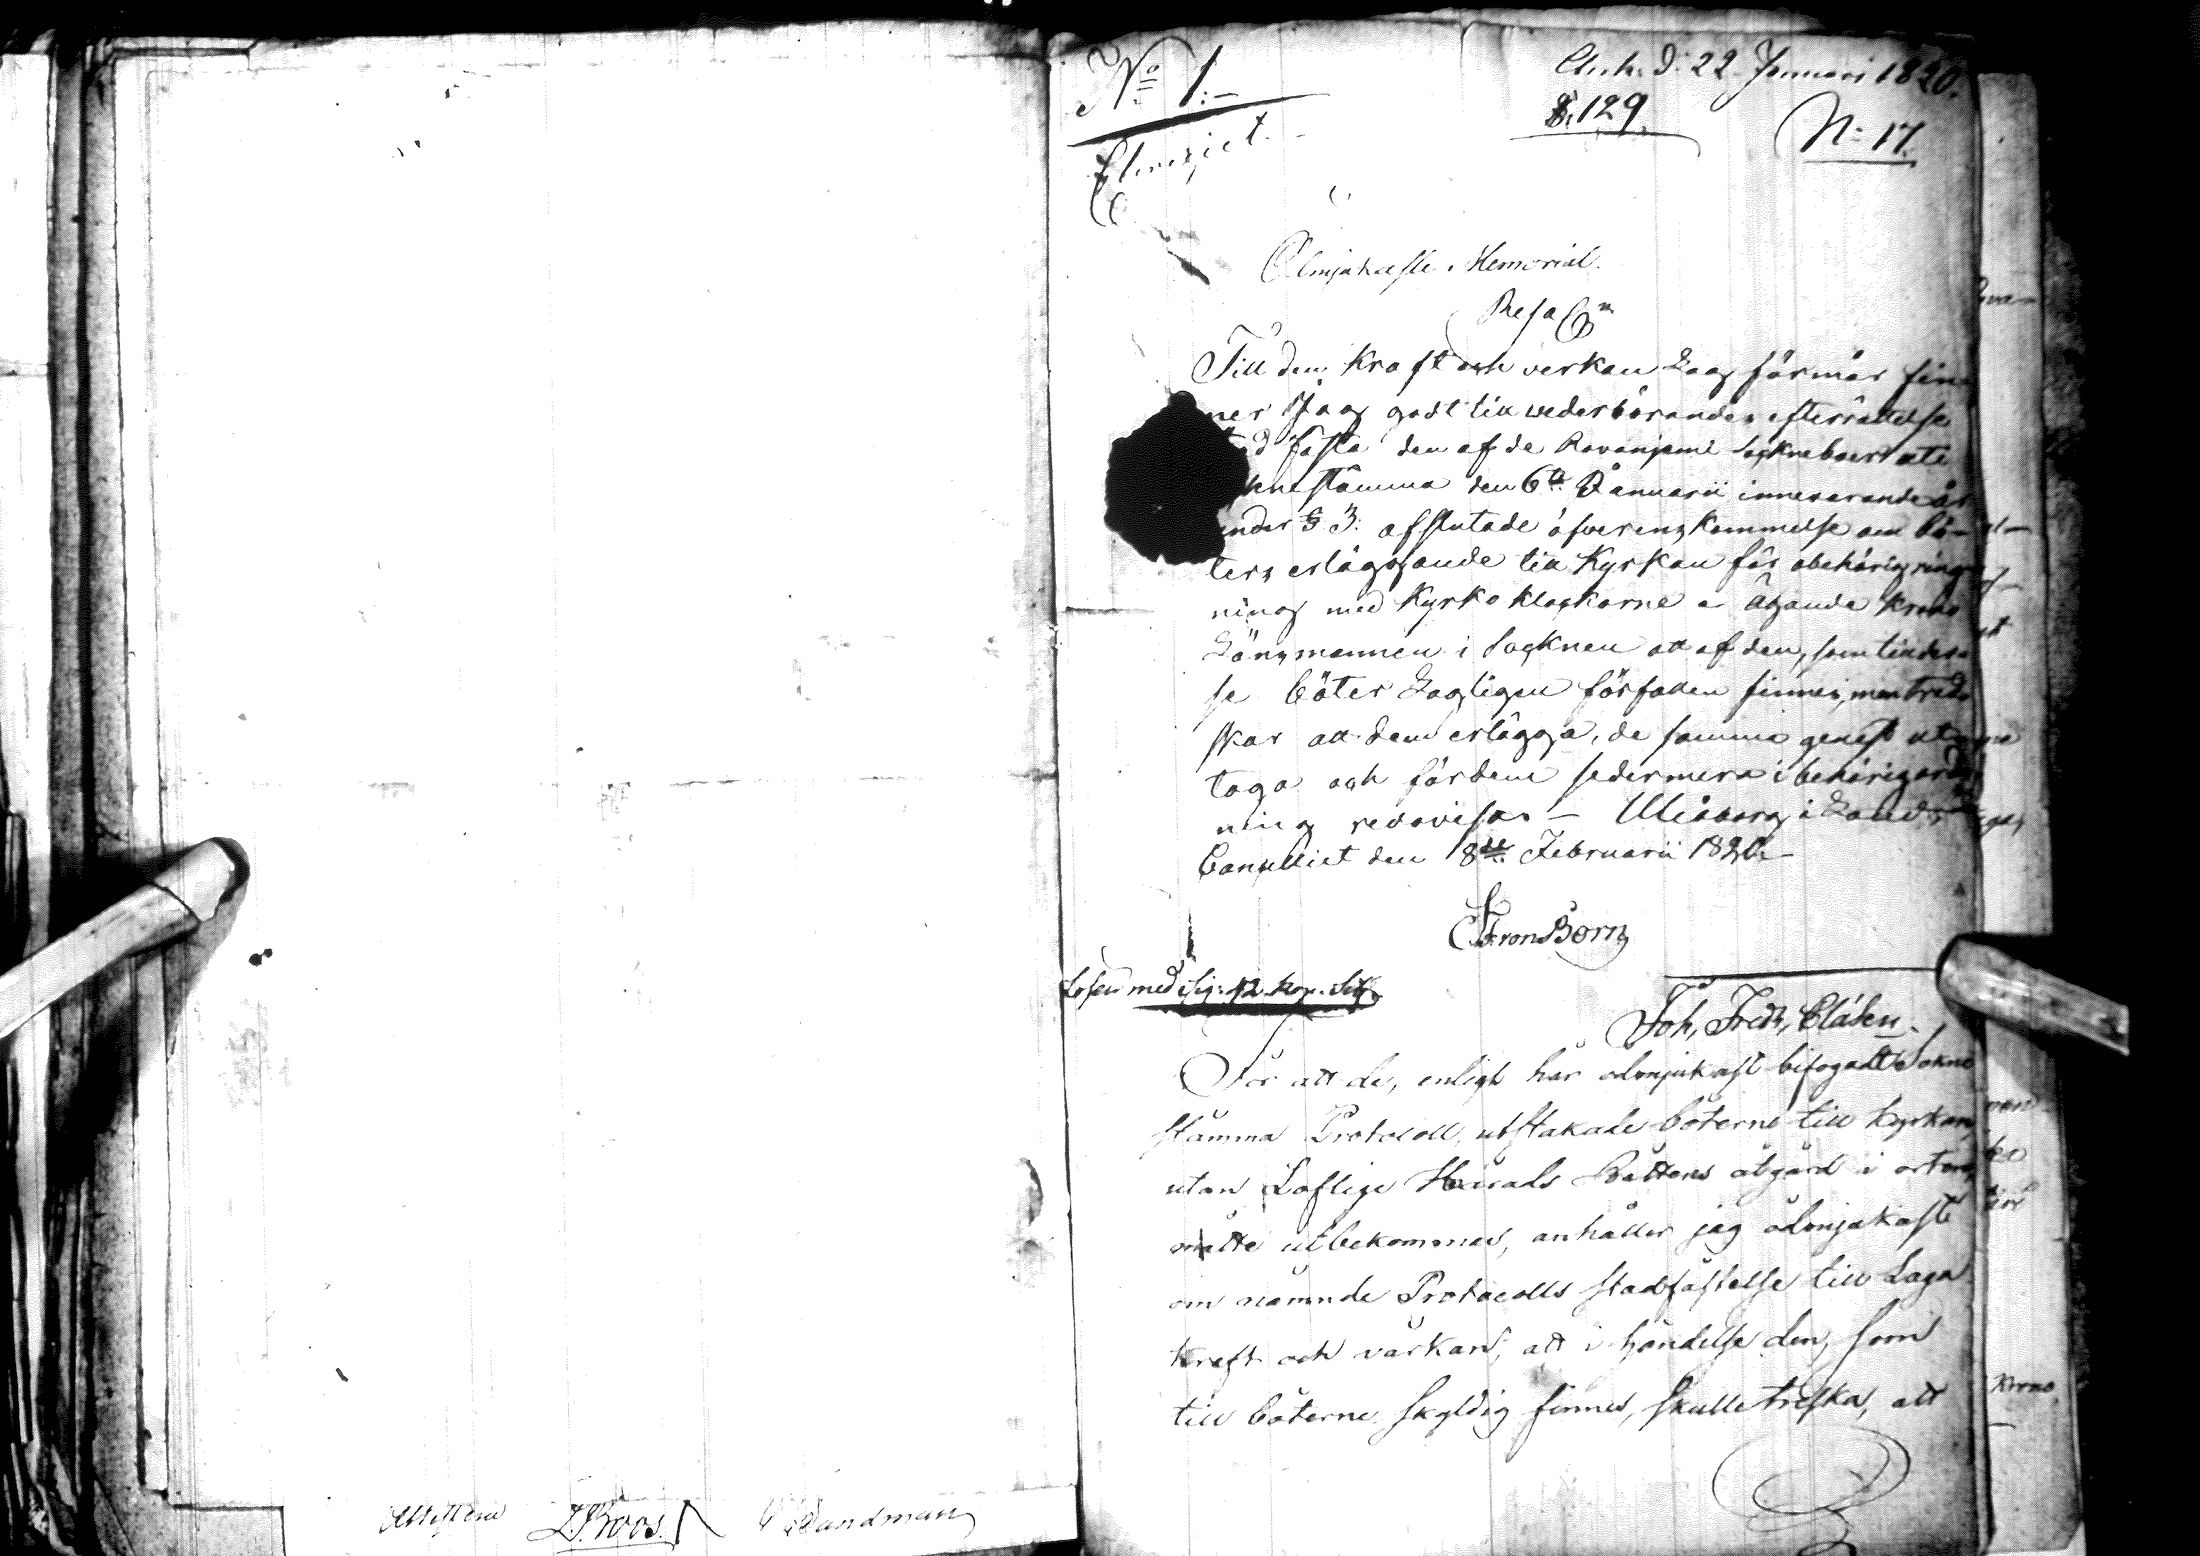 Attestera L. Roos. Sandman
No 1:-
Ank. d: 22 Januari 1820.
§. 129.
N: 17.
Ödmjukaste Memorial.
Resol
Till den kraft och verkan Lag förmår fin-
ner Jag godt till vederbörandes efterrättelse
fästa den af de Rovaniemi Sockneboer uti
stämma den 6te Januarii innevarande år
under § 3: afslutade öfverenskommelse om Bö-
ters erläggande till Kyrkan för obehörig ring-
ning med Kyrko klockorne ägande Krono
Länsmannen i Socknen att af den, som till des-
se Böter Lagligen förfallen finnes, men tred-
skas att dem erlägga, de samma genast ut
taga och för dem sedermera i behörig ord-
ning redovisa. – Uleåborg i Lands
Cancelliet den 8de Februarii 1820.
von Born
Lösen med Sig: 42 kop. Silf.
Joh, Fredr, Clásen.
För att de, enligt här ödmjukast bifogadte Sokne
stämma Protocoll, utstakade böterne till kyrkan
utan Loflige Härads Rättens åtgärd i orten
måtte utbekommas, anhåller jag ödmjukaste
om nämnde Protocolls stadfästelse till Laga
kraft och värkan, att i händelse den, som
till böterne skyldig finnes, skulle treska, att
Krono